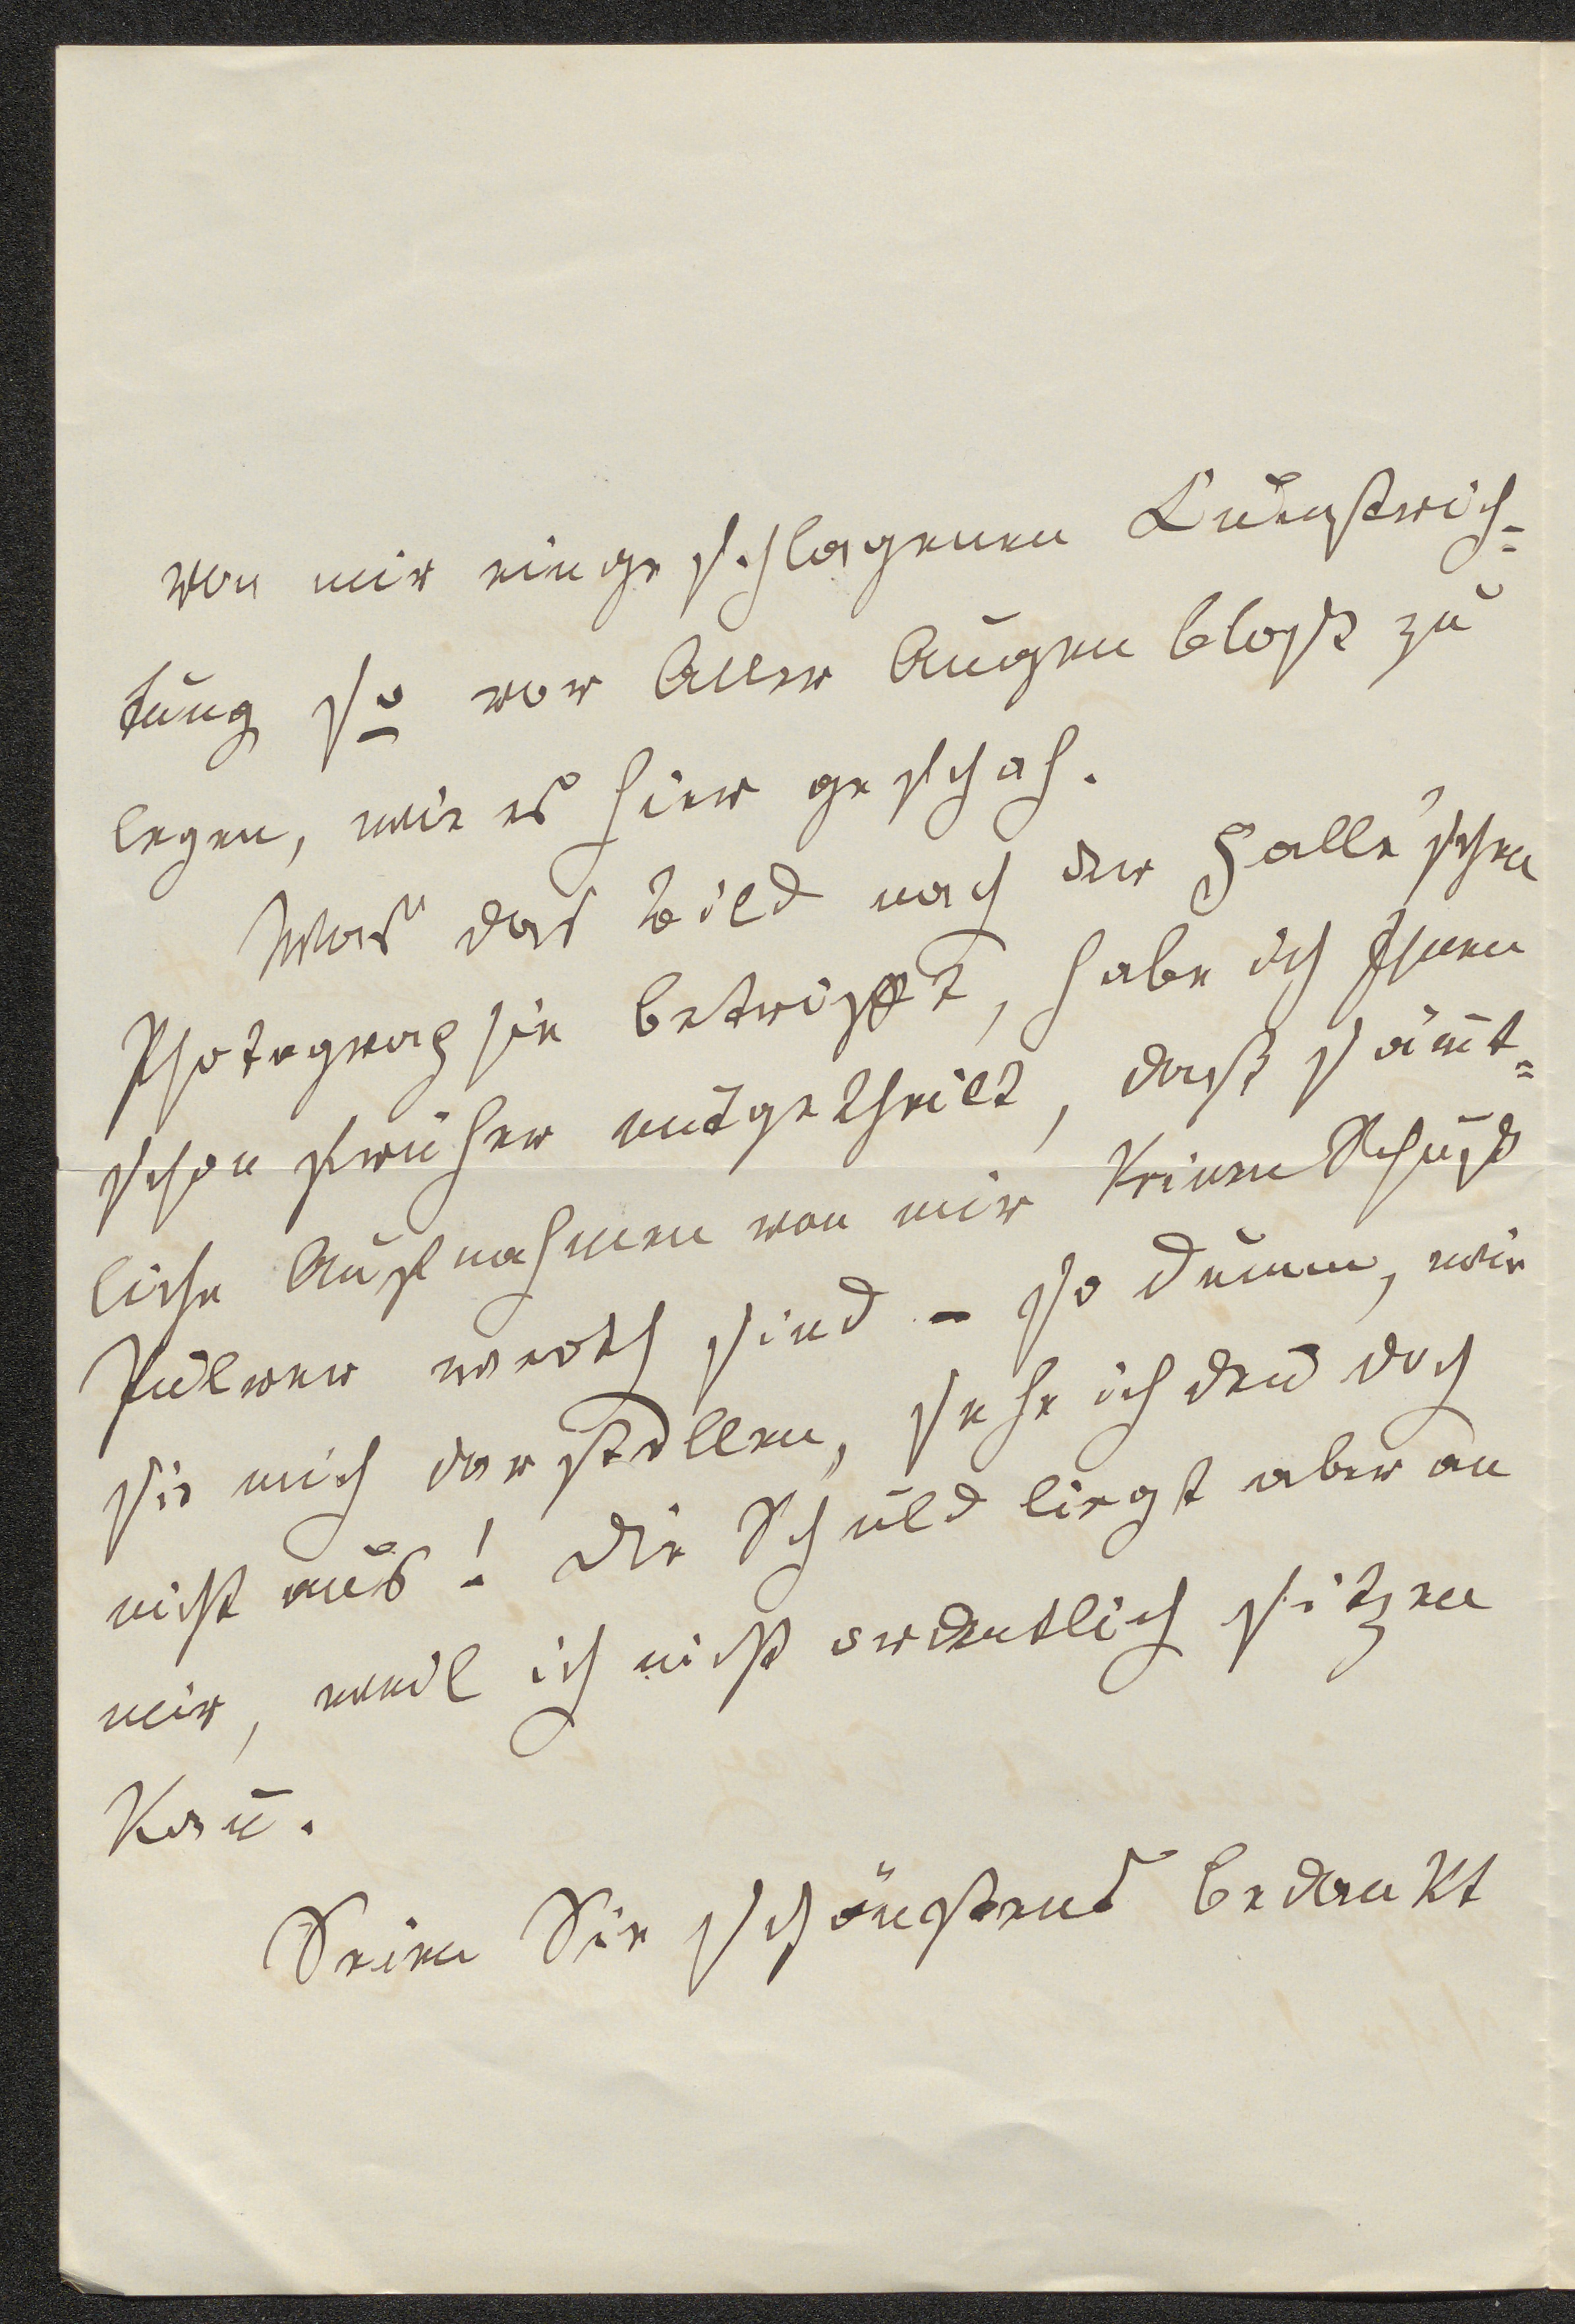 von mir eingeschlagenen Kunstrich=
tung so vor Aller Augen blosz zu
legen, wie es hier geschah.
Was das Bild nach der Halle'schen
Photographie betrifft, habe ich Ihnen
schon früher mitgetheilt, dasz säm̄t=
liche Aufnahmen von mir keinen Schusz
Pulver werth sind – so dumm, wie
sie mich darstellen, sehe ich den̄ doch
nicht aus! Die Schuld liegt aber an
mir, weil ich nicht ordentlich sitzen
kan̄.
Seien Sie schönstens bedankt